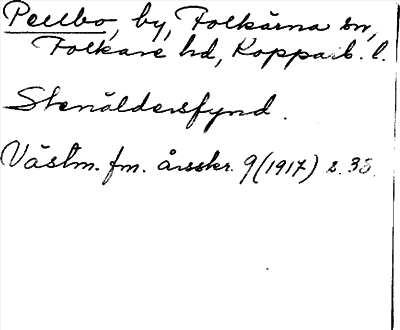 Pellbo, by, Folkärna sn,
Folkare hd, Koppab. l.
Stenåldersfynd.
Västm. fm. årsskr. 9 (1917) s. 35.